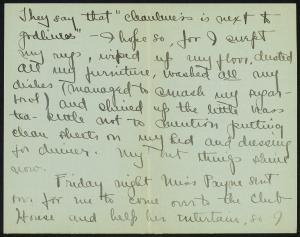 They say that "cleanliness is next to
godliness" - I hope so, for I swept
my rugs, wiped up my floor, dusted
all my furniture, washed all my
dishes (managed to smash my sugar-
bowl) and shined up the little brass
tea-kettle not to mention putting
clean sheets on my bed and dressing
for dinner. My but things shine
now.
Friday night Miss Payne sent
for me to come over to the Club
House and help her entertain, so I